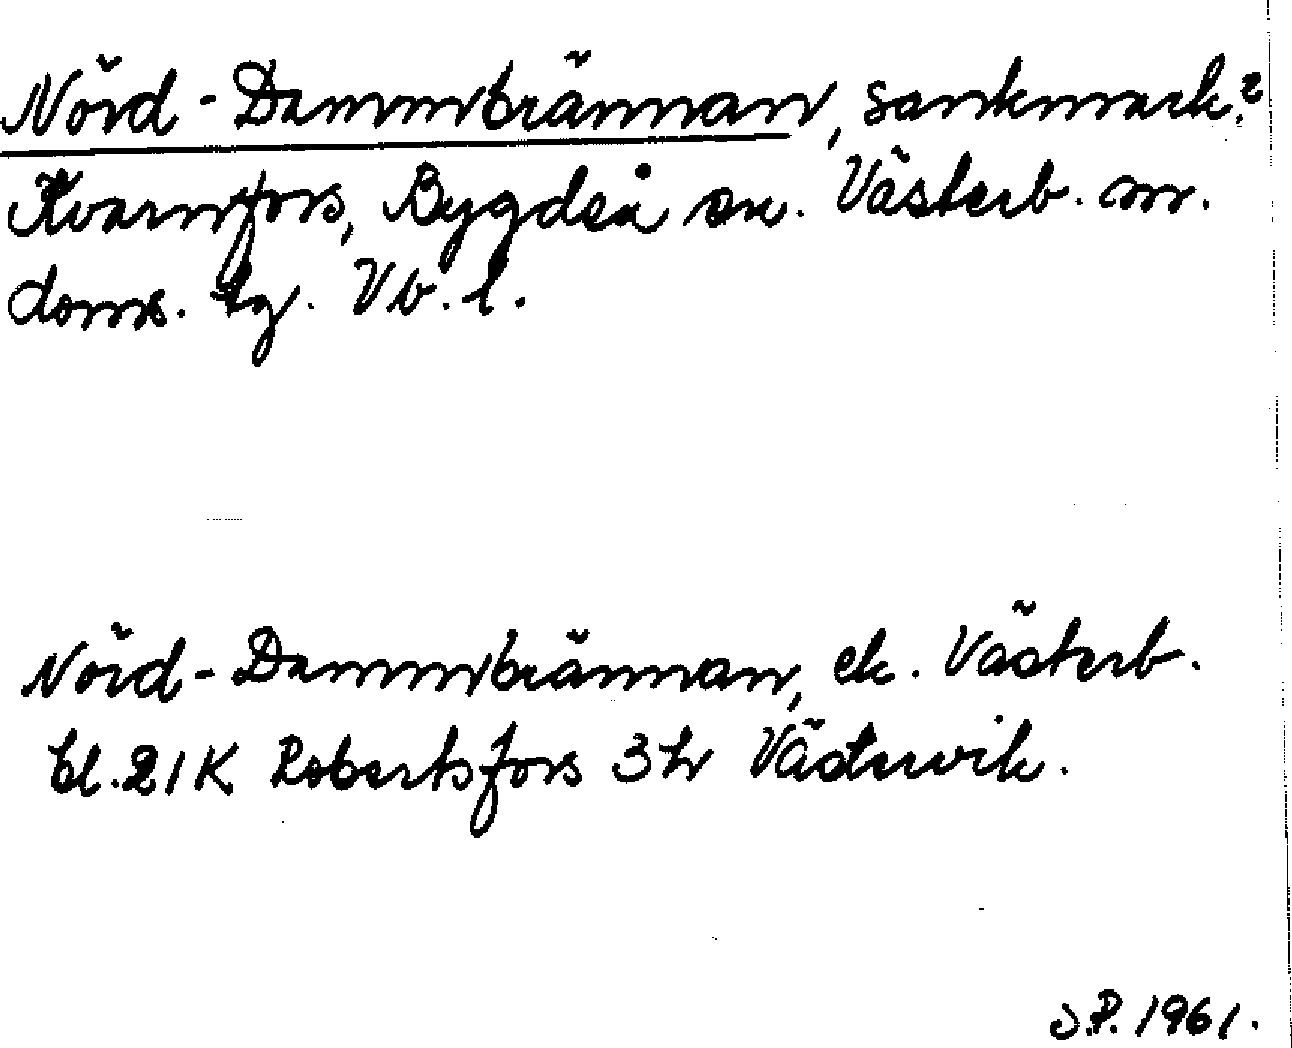 Nörd-Dammbrännan, sankmark?
Kvarnfors, Bygdeå sn. Västerb. nr.
doms. lg. Vb. l.
Nörd-Dammbrännan, ek. Västerb.
bl. 21K Robertsfors 3h Västervik.
J.P. 1961.